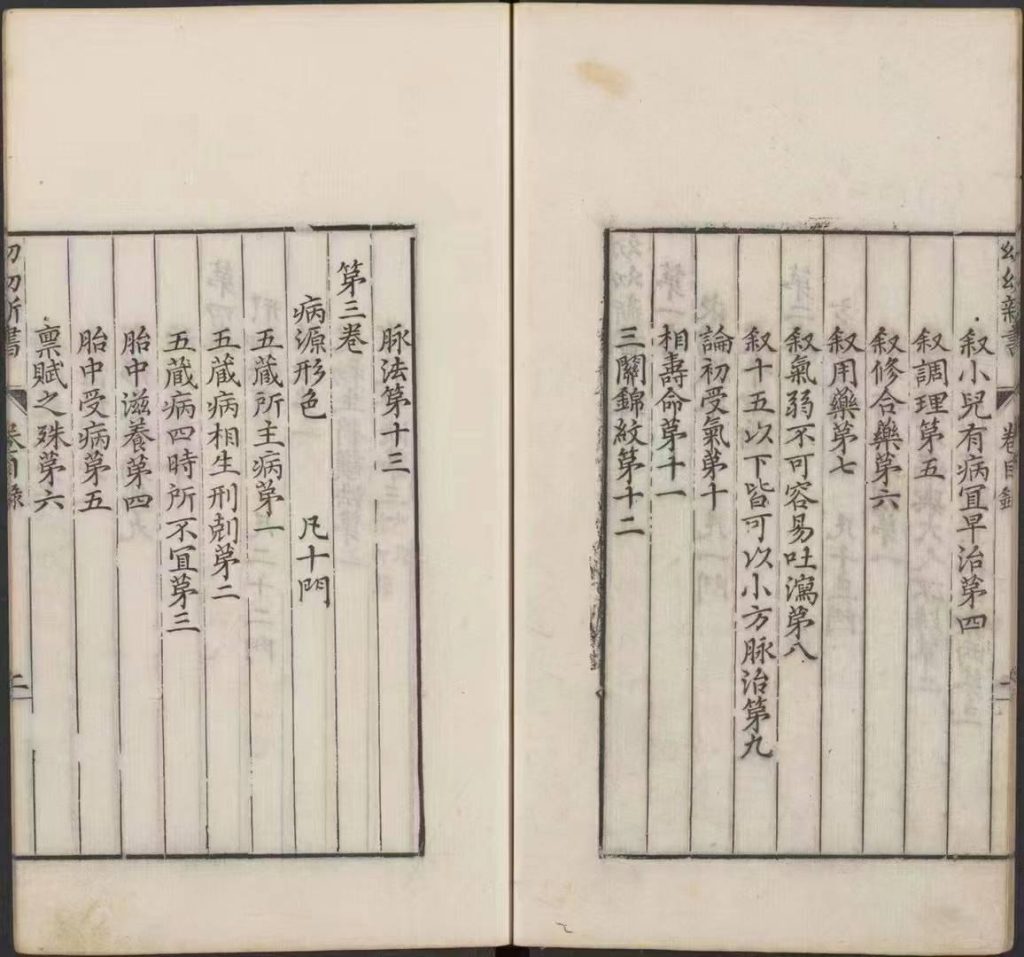 幼幼新書
卷目錄
一
叙小兒有病宜早治第四
叙調理第五
叙修合藥第六
叙用藥第七
叙氣弱不可容易吐瀉第八
叙十五以下皆可以小方脉治第九
論初受氣第十
相壽命第十一
三關錦紋第十二
脉法第十三
第三卷
病源形色 凡十門
五蔵所主病第一
五蔵病相生刑剋第二
五蔵病四時所不宜第三
胎中滋養第四
胎中受病第五
禀賦之殊第六
幼幼新書
卷目錄
二